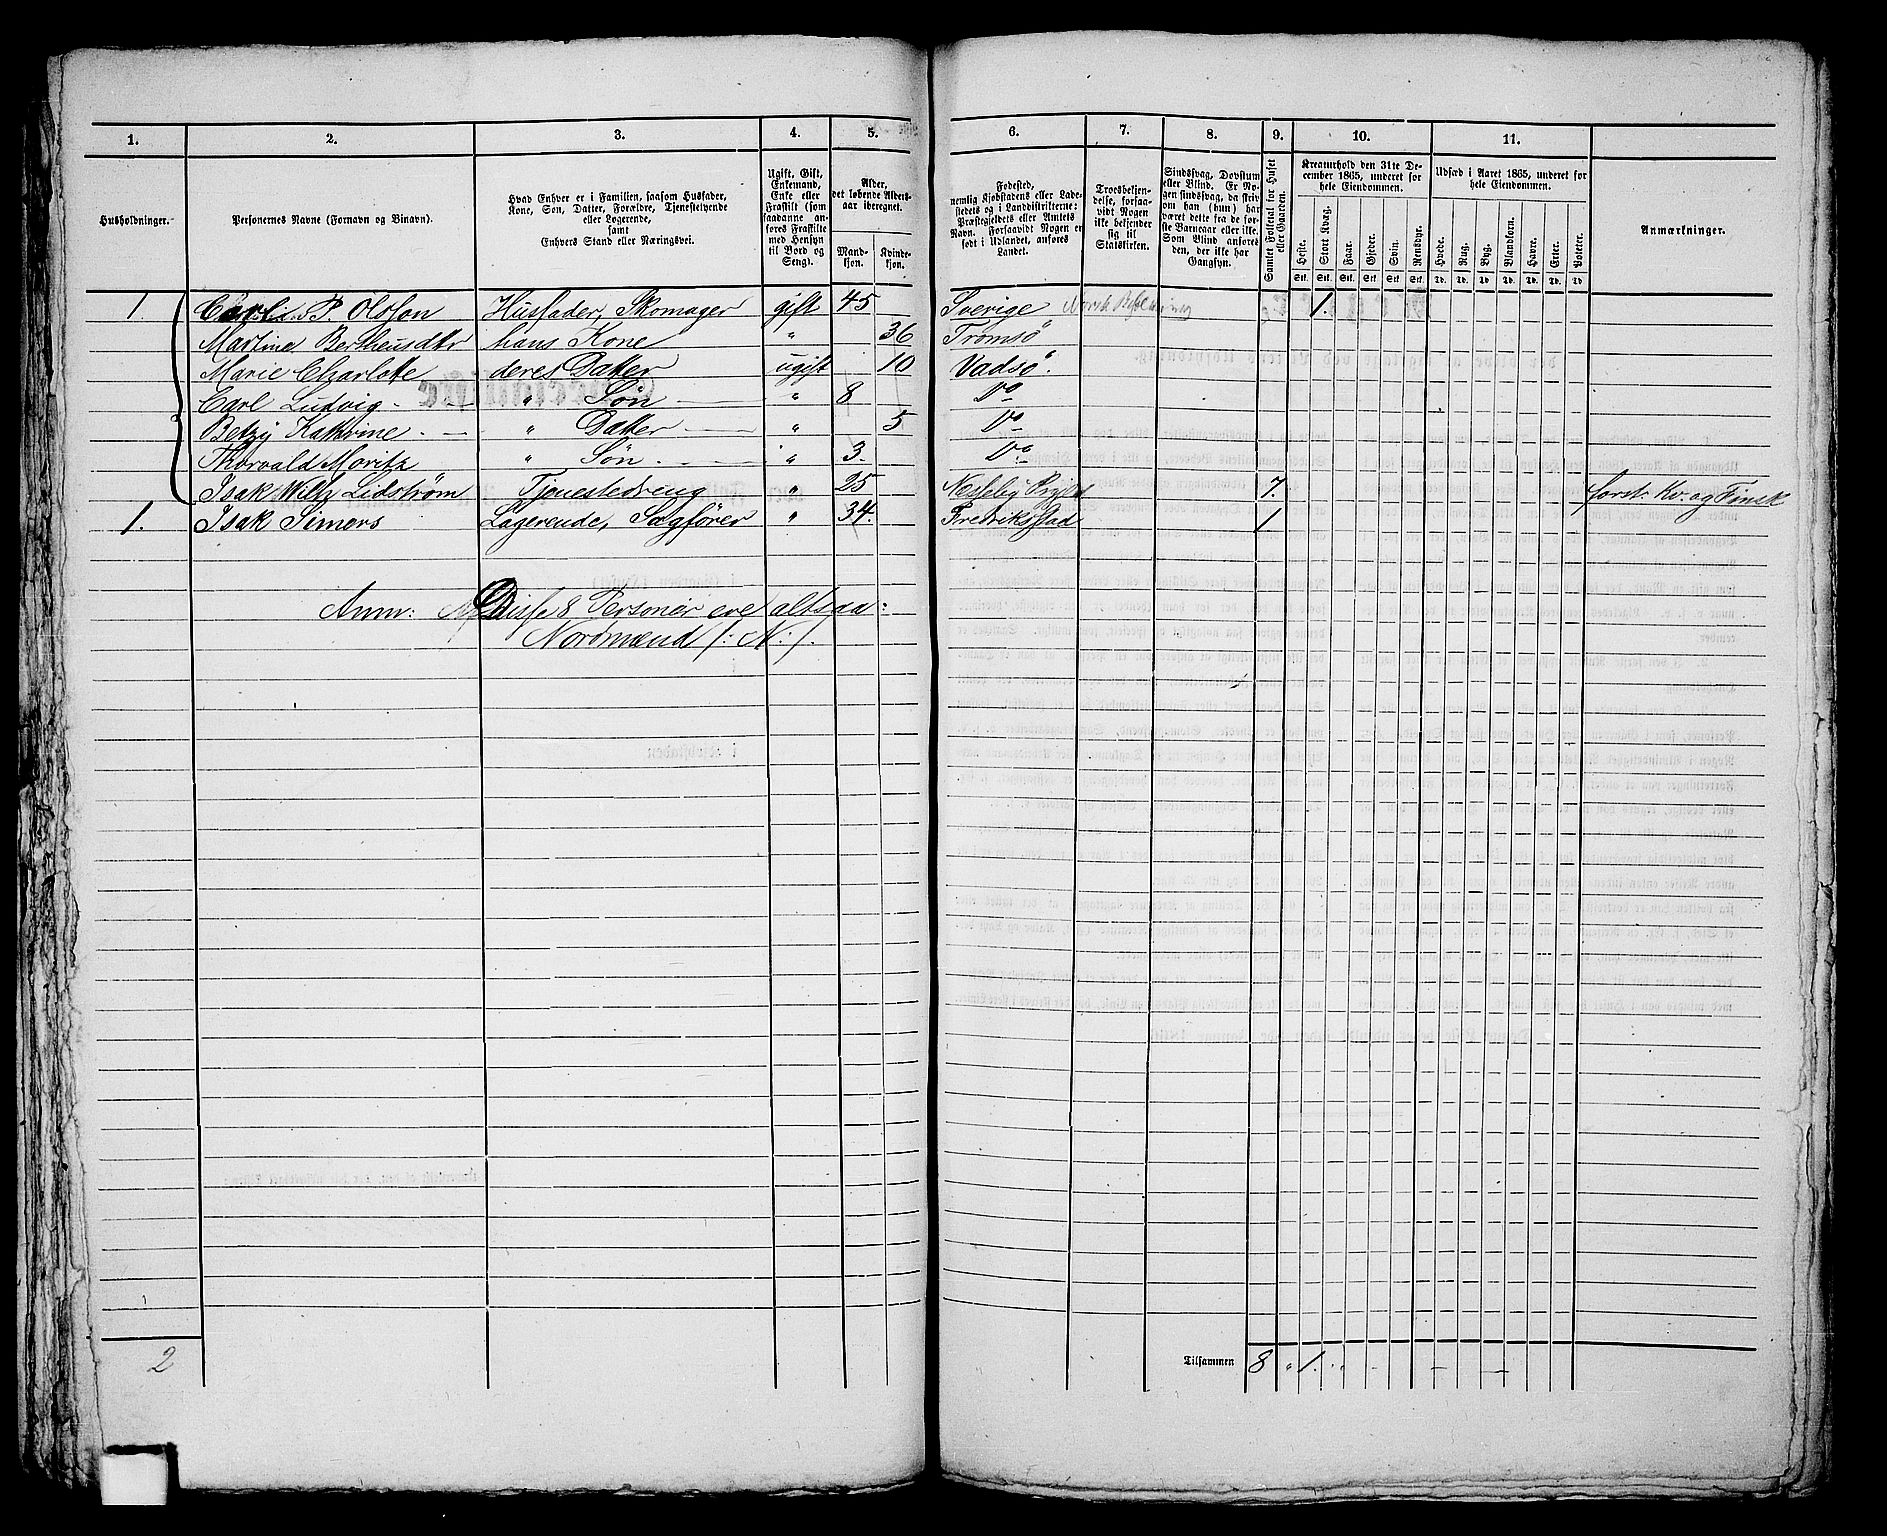 1. 2. 3. 4. 5. 6. 7. 8. 9. 10. 11.
Husholdninger.
Personernes Navne (Fornavn og Binavn).
Hvad Enhver er i Familien, saasom Husfader,
Kone, Søn, Datter, Forældre, Tjenestetyende
eller Logerende,
samt
Enhvers Stand eller Næringsvei.
Ugift, Gift,
Enkemand,
Enke eller
Fraskilt (som
saadanne an-
føres Fraskilte
med Hensyn
til Bord og
Seng).
Alder,
det løbende Alders-
aar iberegnet.
Mand-
kjøn.
Kvinde-
kjøn.
Fødested,
nemlig Kjøbstadens eller Lade-
stedets og i Landdistrikterne:
Præstegjeldets eller Amtets
Navn. Forsaavidt Nogen er
født i Udlandet, anføres
Landet.
Troesbekjen-
delse, forsaa-
vidt Nogen
ikke bekjender
sig til
Statskirken.
Sindssvag, Døvstum
eller Blind. Er No-
gen sindssvag, da skriv
om han (hun) har
været dette fra de før-
ste Barneaar eller ikke.
Som Blind anføres
den, der ikke har
Gangsyn.
Samlet Folketal for Huset
eller Gaarden.
Kreaturhold den 31te De-
cember 1865, underet for
hele Eiendommen.
Heste. Stort Kvæg. Faar. Gjeder. Svin. Rensdyr.
Stk. Stk. Stk. Stk. Stk. Stk.
Udsæd i Aaret 1865, underet for
hele Eiendommen.
Hvede. Rug. Byg. Blandkorn. Havre. Erter. Poteter.
Td. Td. Td. Td. Td. Td. Td.
Anmærkninger.
1. Carl P. Olsson Husfader, Skomager gift 45 Sverige Norsk 1.
Martine Bertheusdtr hans Kone " 36 Tromsö
Marie Charlotte deres Datter ugift 10 Vadsö.
Carl Ludvig " Søn " 8 Do
Betzy Kathrine " Datter " 5 Do
Thorvald Moritz " Søn " 3. Do
Isak Wilh. Lidström Tjenestedreng " 25 Nesseby Prgjld 7. forst. Kv. og Finsk
1. Isak Simers Logerende, Sagfører " 34. Fredriksstad 1
Anm: Disse 8 Personer ere altsaa:
Nordmænd /: N:/.
2
Tilsammen 8 " 1.